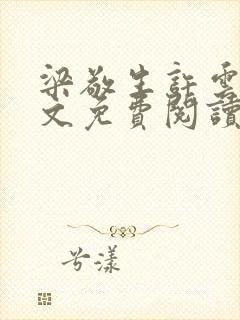 梁敬生許雲
文免費閱讀
兮漾